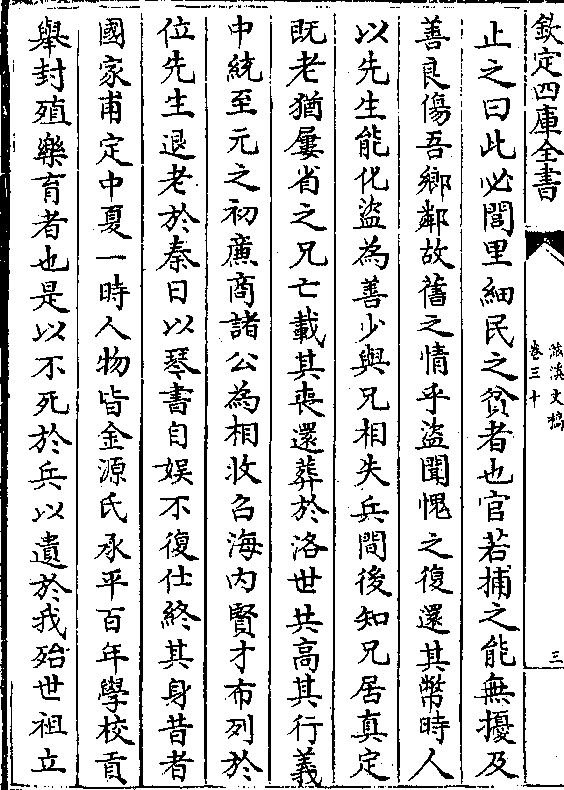 欽定四庫全書
滋溪文稿
卷三十
三
止之曰此必閭里細民之貧者也官若捕之能無擾及
善良傷吾鄉鄰故舊之情乎盜聞愧之復還其幣時人
以先生能化盜為善少與兄相失兵間後知兄居真定
既老猶屢省之兄亡載其喪還葬於洛世共高其行義
中統至元之初廉商諸公為相收召海内賢才布列於
位先生退老於秦日以琴書自娱不復仕終其身昔者
國家甫定中夏一時人物皆金源氏承平百年學校貢
舉封殖樂育者也是以不死於兵以遺於我殆世祖立